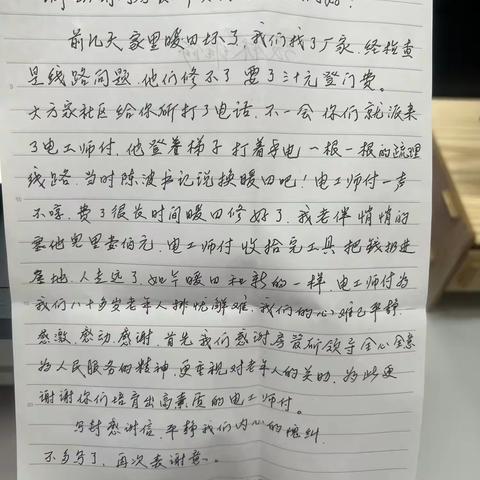 前几天家里暖凹坏了,我们找了厂家,经检查
是线路问题.他们修不了 要了三十元登门费。
大方家社区给你所打了电话.不一会你们就派来
了电工师付.他登着梯子打着手电一根一根的疏理
线路.当时陈波书记说换暖凹吧!电工师付一声
不哼.费了很长时间暖凹修好了.我老伴悄悄的
塞他兜里壹佰元.电工师付收拾完工具把钱扔进
屋地.人走远了.如今暖凹和新的一样.电工师付为
我们八十多岁老年人排忧解难.我们的心难已平静.
感激.感动.感谢.首先我们感谢房管所领导全心全意
为人民服务的精神.更重视对老年人的关助.为此更
谢谢你们培育出高素质的电工师付。
写封感谢信.平静我们内心的愧纠.
不多写了.再次表谢意。